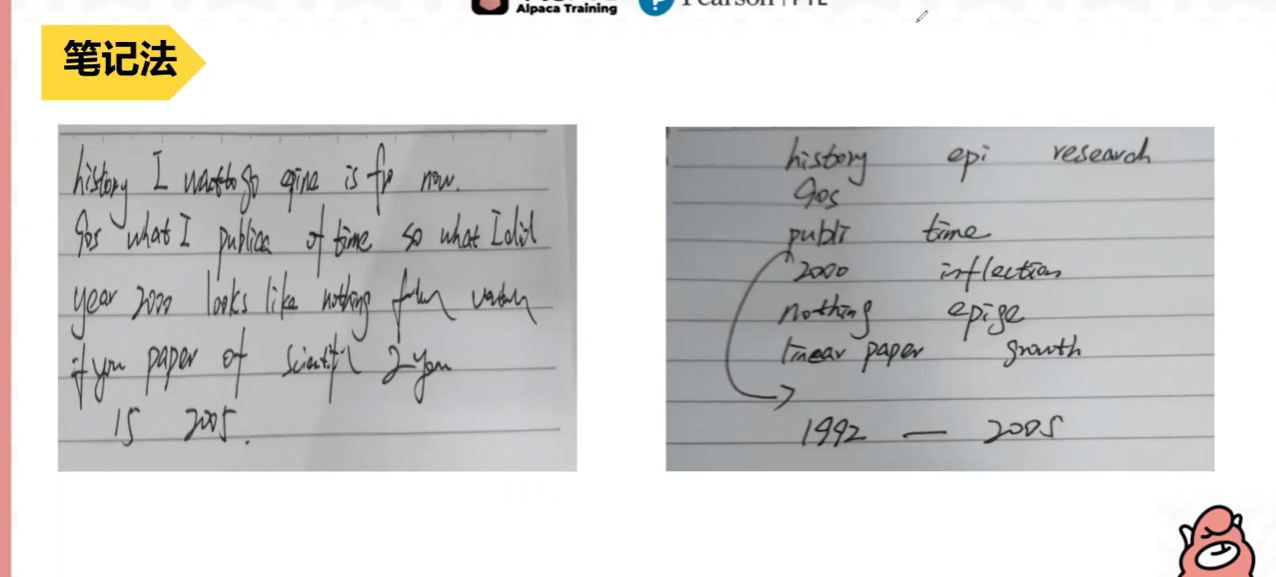 Alpaca Training
Pearson | PTE
笔记法
history I want to go is now.
90s what I publica of time so what I did
year 2000 looks like nothing
if you paper of scientifi 2 you
15 2005.
history epi research
90s
publi time
2000 inflection
nothing epige
linear paper growth
1992 — 2005